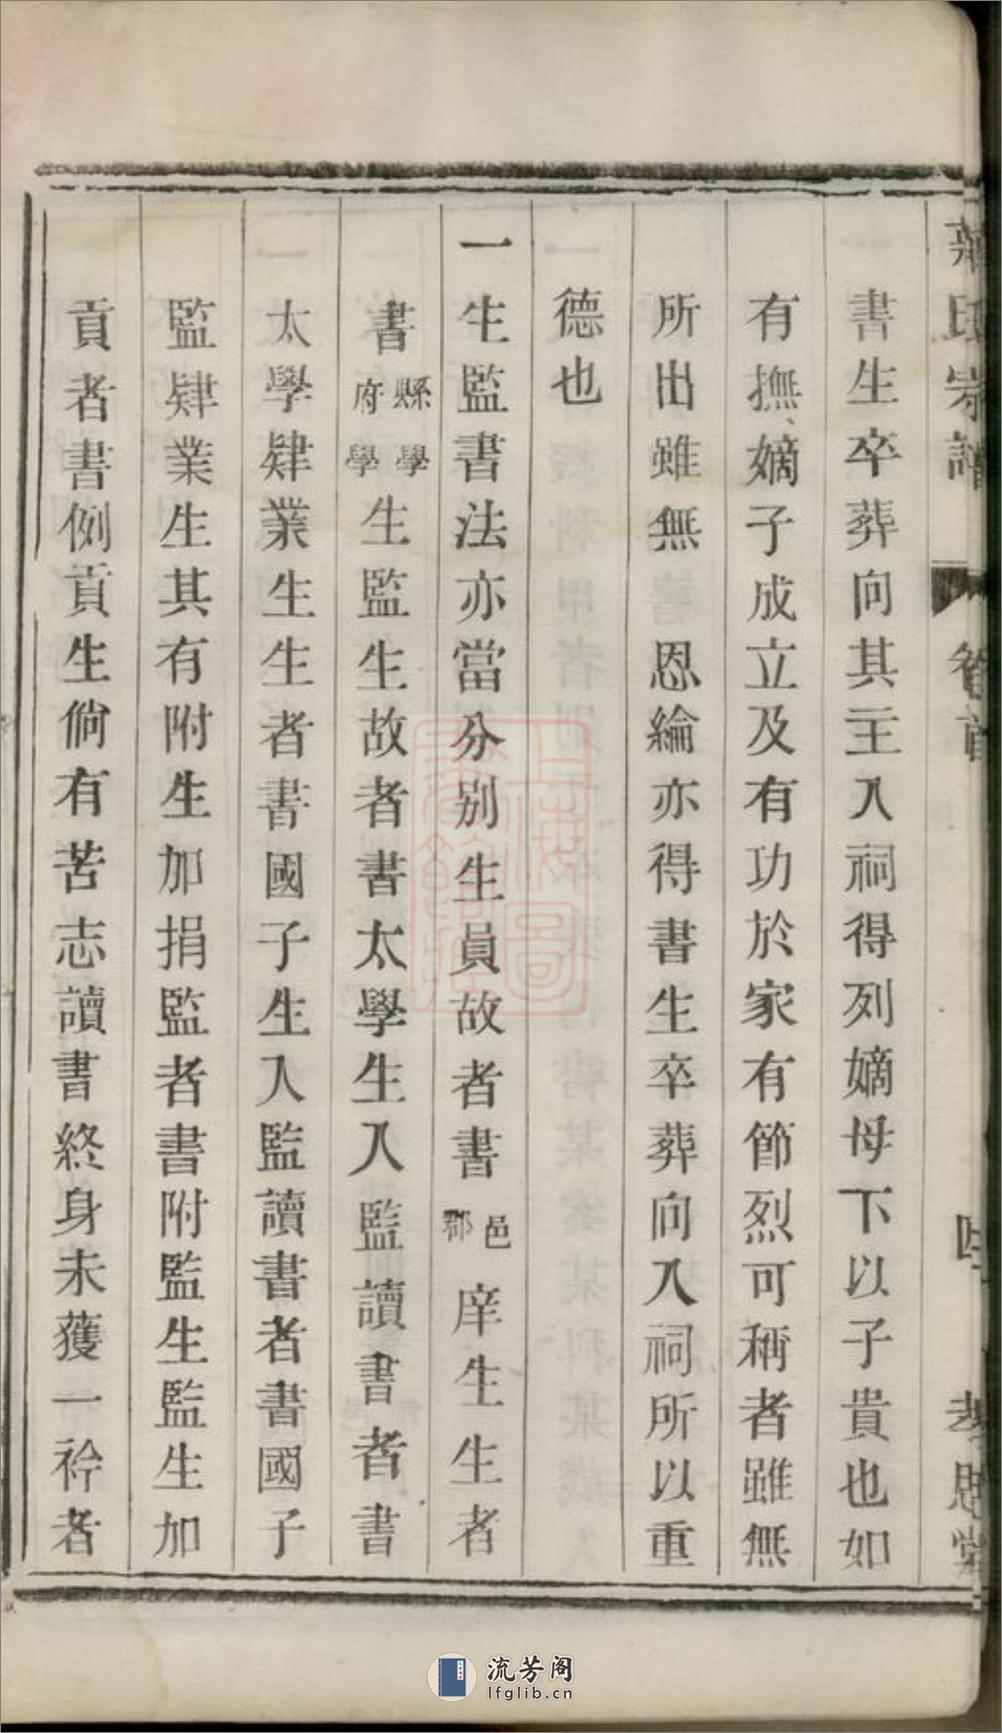 書生卒葬向其主入祠得列嫡母下以子貴也如
有撫嫡子成立及有功於家有節烈可稱者雖無
所出雖無　恩綸亦得書生卒葬向入祠所以重
德也
一生監書法亦當分别生員故者書邑郡庠生生者
書縣學府學生監生故者書太學生入監讀書者書
太學肄業生生者書國子生入監讀書者書國子
監肄業生其有附生加捐監者書附監生監生加
貢者書例貢生倘有苦志讀書終身未獲一衿者
氏宗譜
卷首
思堂
流芳阁
lfglib.cn